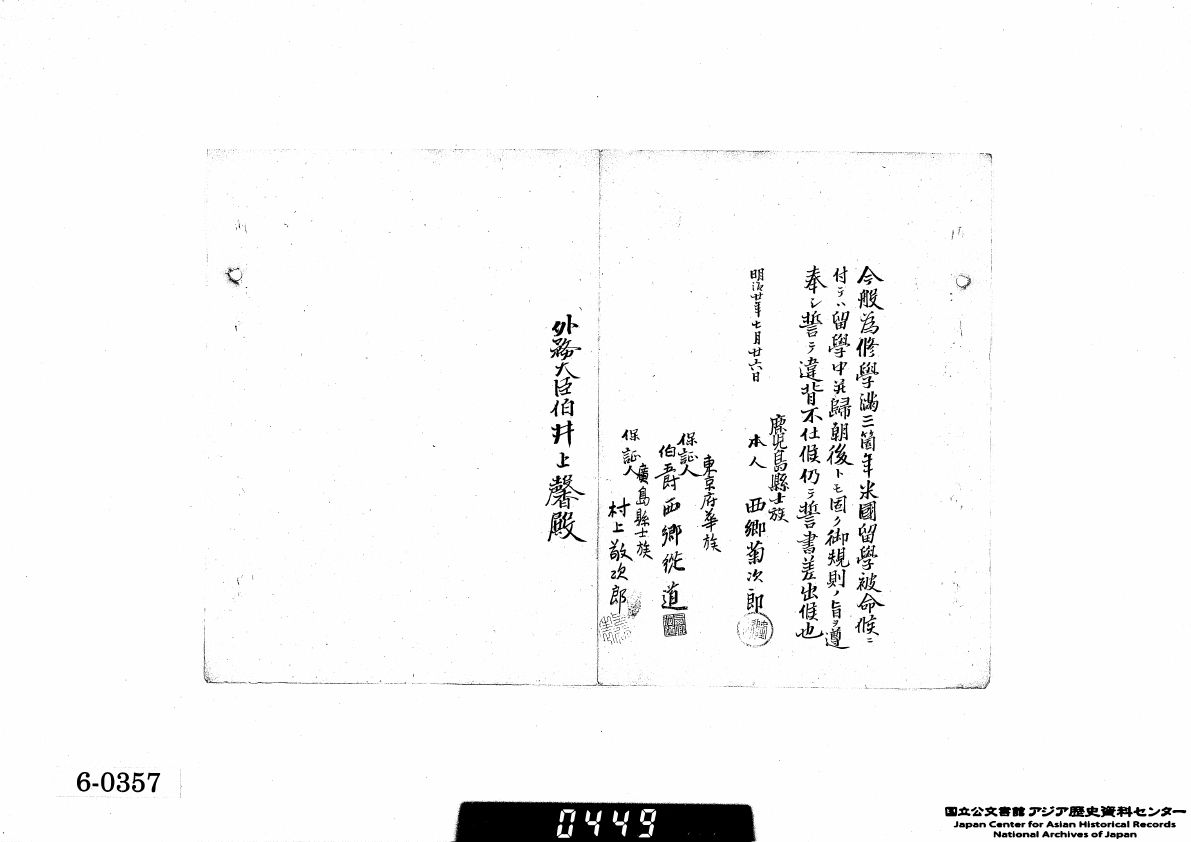 今般為修學滿三箇年米國留學被命候ニ
付テハ留學中並歸朝後トモ固ク御規則ノ旨ヲ遵
奉シ誓テ違背不仕候仍テ誓書差出候也
明治廿年七月廿六日
鹿児島縣士族
本人 西郷菊次郎
東京府華族
保証人
伯爵西郷従道
廣島縣士族
保証人 村上敬次郎
外務大臣伯井上馨殿
6-0357
0449
国立公文書館 アジア歴史資料センター
Japan Center for Asian Historical Records
National Archives of Japan